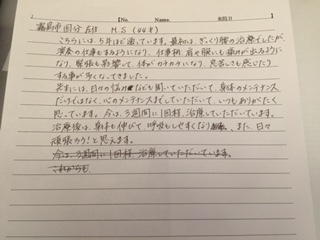 【No.　Name.
霧島市国分在住　M.S (44才)
こちらには5年ほど通っています。最初は、ぎっくり腰の治療でしたが、
演奏の仕事をするようになり、仕事柄、肩や腕にも痛みが出るように
なり、緊張も影響して、体がガチガチになり、息苦しさも感じたり
する事が多くなってきました。
先生には、日々の悩みなども聞いていただいて、身体のメンテナンス
だけではなく、心のメンテナンスまでしていただいて、いつもありがたく
思っています。今は、3週間に1回程、治療していただいています。
治療後は、身体も伸びて呼吸もしやすくなり、また、日々
頑張ろう！と思えます。
今は、3週間に1回程、治療していただいています。
これからも